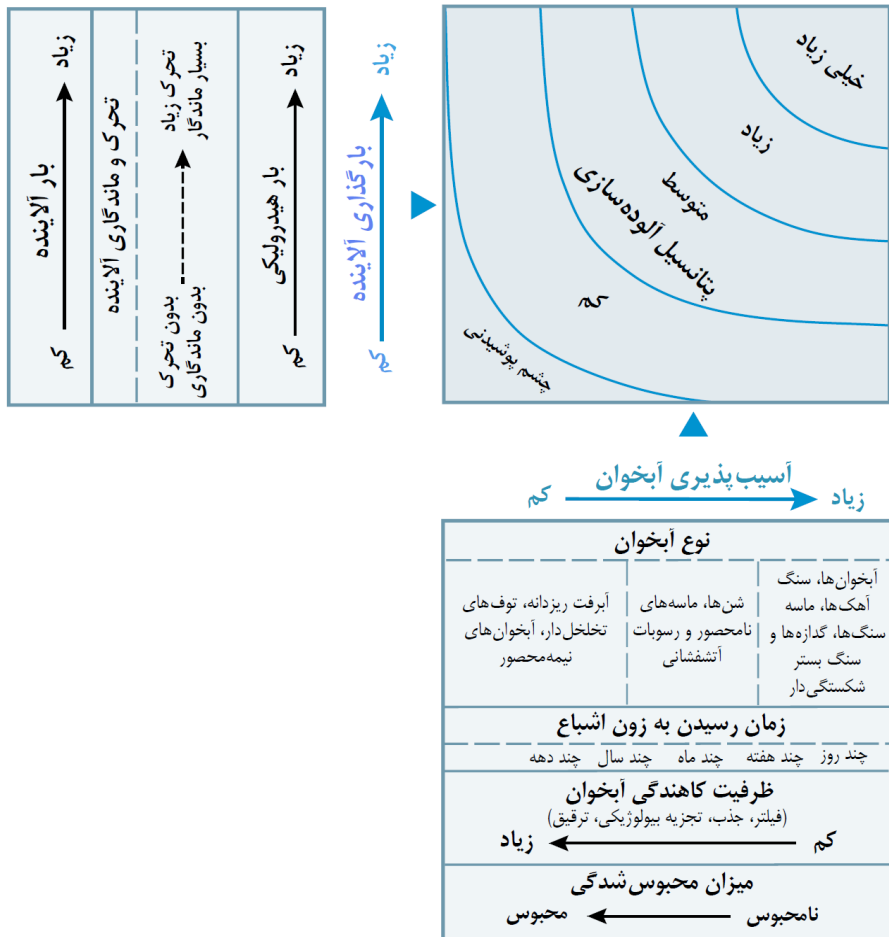 بار آلاینده
کم
زیاد
تحرک و ماندگاری آلاینده
بدون تحرک
بدون ماندگاری
تحرک زیاد
بسیار ماندگار
بار هیدرولیکی
کم
زیاد
بارگذاری آلاینده
کم
زیاد
خیلی زیاد
زیاد
متوسط
پتانسیل آلوده‌سازی
کم
چشم پوشیدنی
آسیب‌پذیری آبخوان
کم
زیاد
نوع آبخوان
آبخوان‌ها، سنگ
آهک‌ها، ماسه
سنگ‌ها، گدازه‌ها و
سنگ بستر
شکستگی‌دار
شن‌ها، ماسه‌های
نامحصور و رسوبات
آتشفشانی
آبرفت ریزدانه، توف‌های
تخلخل‌دار، آبخوان‌های
نیمه‌محصور
زمان رسیدن به زون اشباع
چند روز چند هفته چند ماه چند سال چند دهه
ظرفیت کاهندگی آبخوان
(فیلتر، جذب، تجزیه بیولوژیکی، ترقیق)
کم
زیاد
میزان محبوس‌شدگی
نامحبوس
محبوس